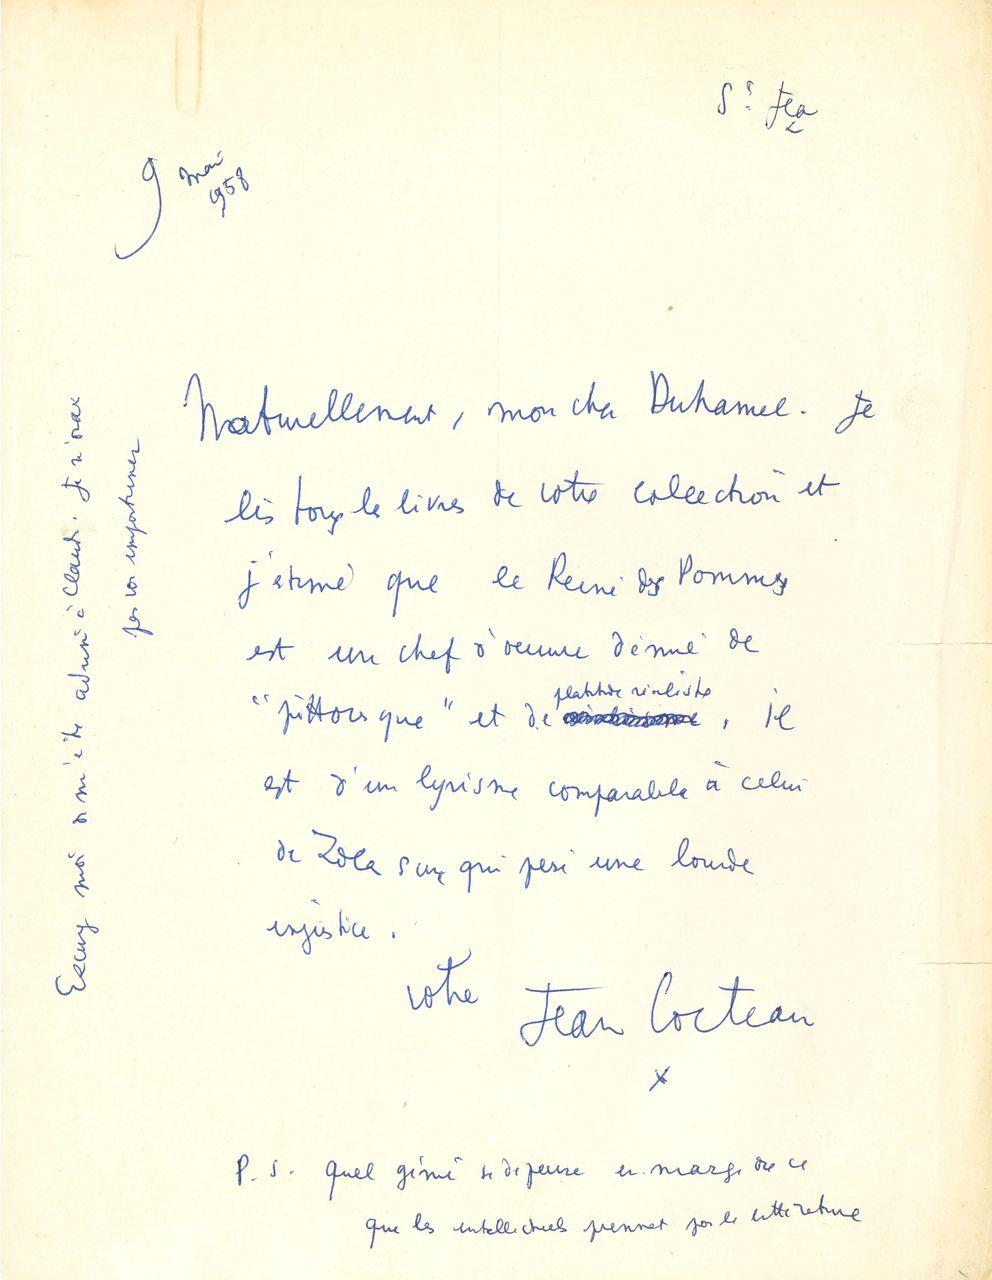 St Jean
9 mai
1958
Naturellement, mon cher Duhamel. Je
lis tous les livres de votre collection et
j'estime que la Reine des Pommes
est un chef d'œuvre dénué de
"pittoresque" et de platitude réaliste, il
est d'un lyrisme comparable à celui
de Zola sur qui pèse une lourde
injustice.
votre Jean Cocteau
x
P.S. Quel génie se dépense en marge de ce
que les intellectuels prennent pour la littérature
Excusez moi de m'être adressé à Claude. Je n'osais
pas vous importuner